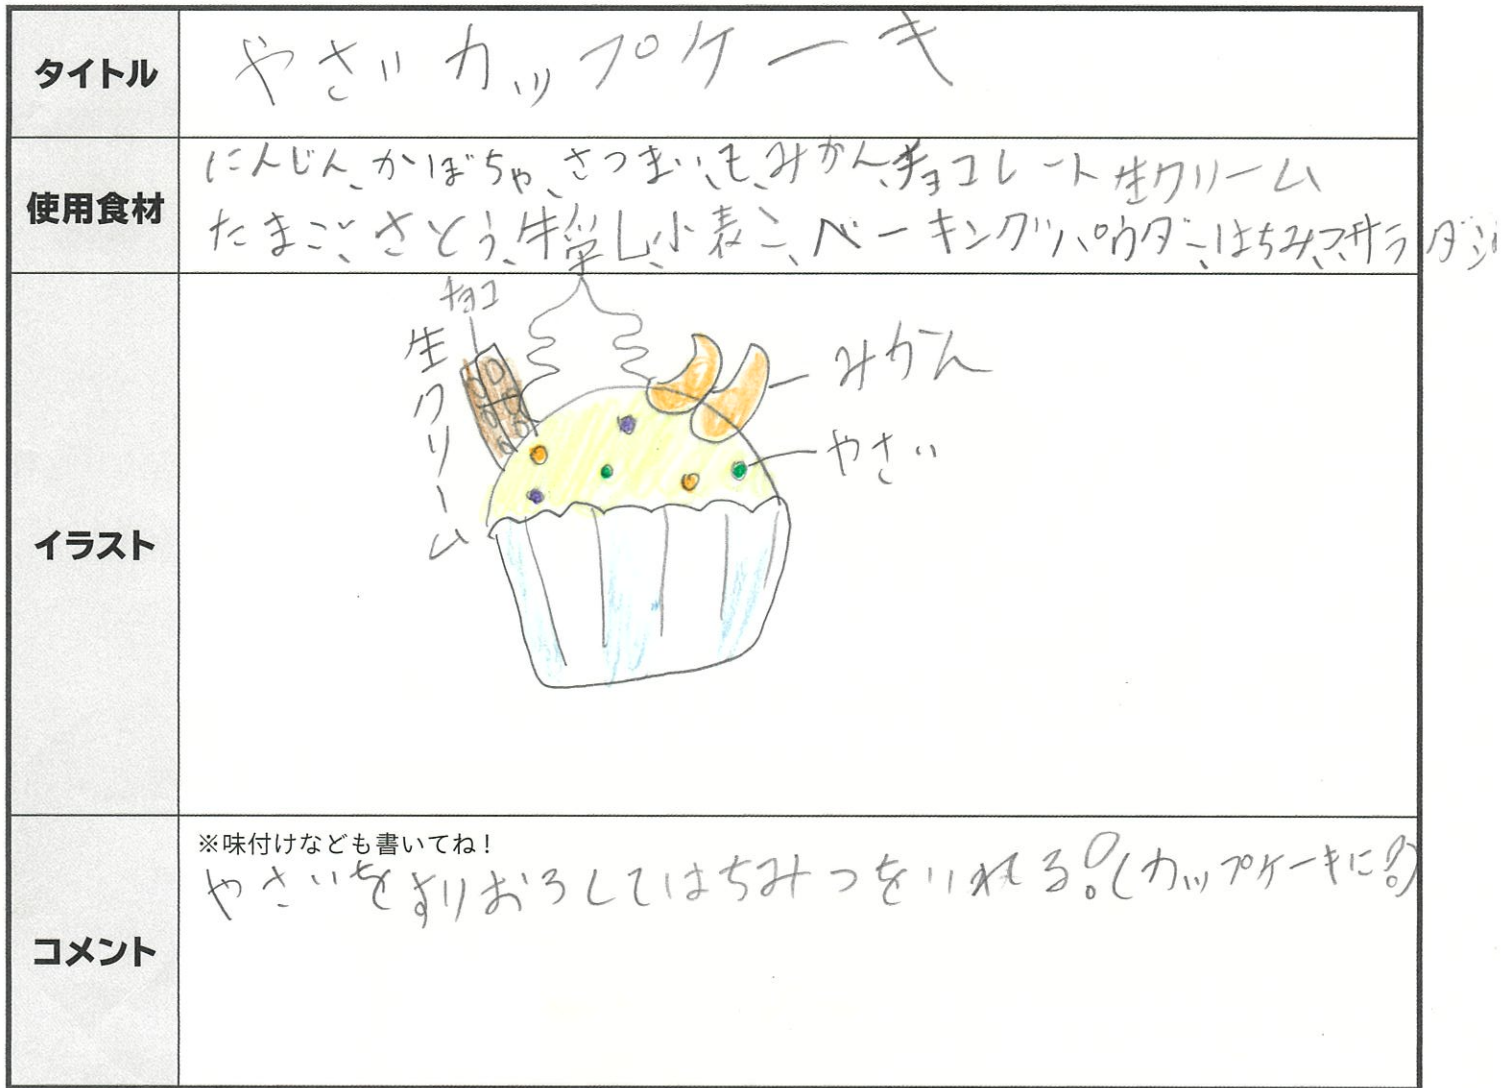 タイトル
やさいカップケーキ
使用食材
にんじん、かぼちゃ、さつまいも、みかん、チョコレート生クリーム
たまご、さとう、牛乳、小麦こ、ベーキングパウダー、はちみつ、サラダ
イラスト
チョコ
生クリーム
みかん
やさい
コメント
※味付けなども書いてね！
やさいをすりおろしてはちみつをいれる！(カップケーキに！)